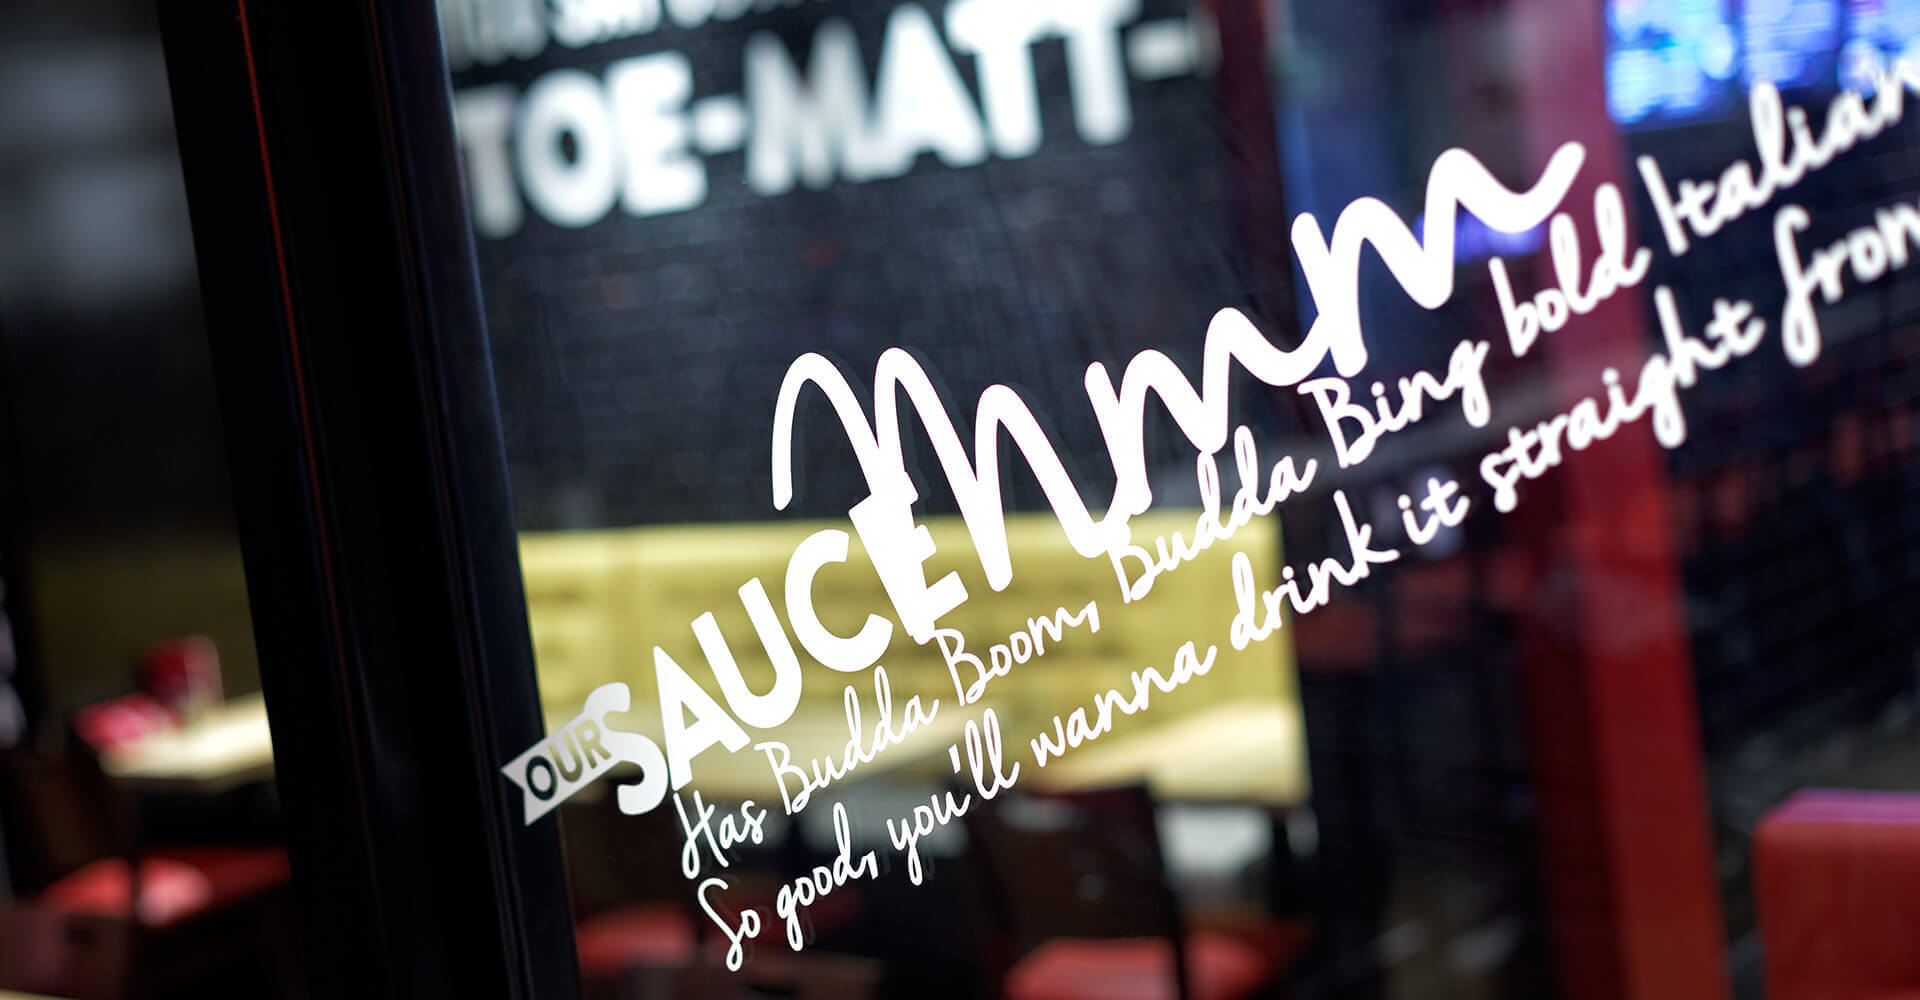 TOE-MATT-
OUR SAUCE Mmmmm
Has Budda Boom, Budda Budda Bing bold Italian
So good, you'll wanna drink it straight from